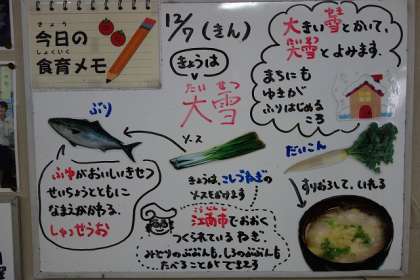 きょう
今日の
しょくいく
食育メモ
12/7 (きん)
きょうは
だい せつ
大雪
ゆき
大きい雪とかいて、
たいせつ
大雪とよみます。
まちにも
ゆきが
ふりはじめる
ころ
ぶり
ソース
だいこん
ふゆがおいしいきせつ
せいちょうとともに
なまえがかわる。
しゅっせうお
きょうは、こしづねぎの
ソースをかけます
すりおろして、いれる
江南市でおおく
つくられているねぎ。
みどりのぶぶんも、しろのぶぶんも
たべることができまる